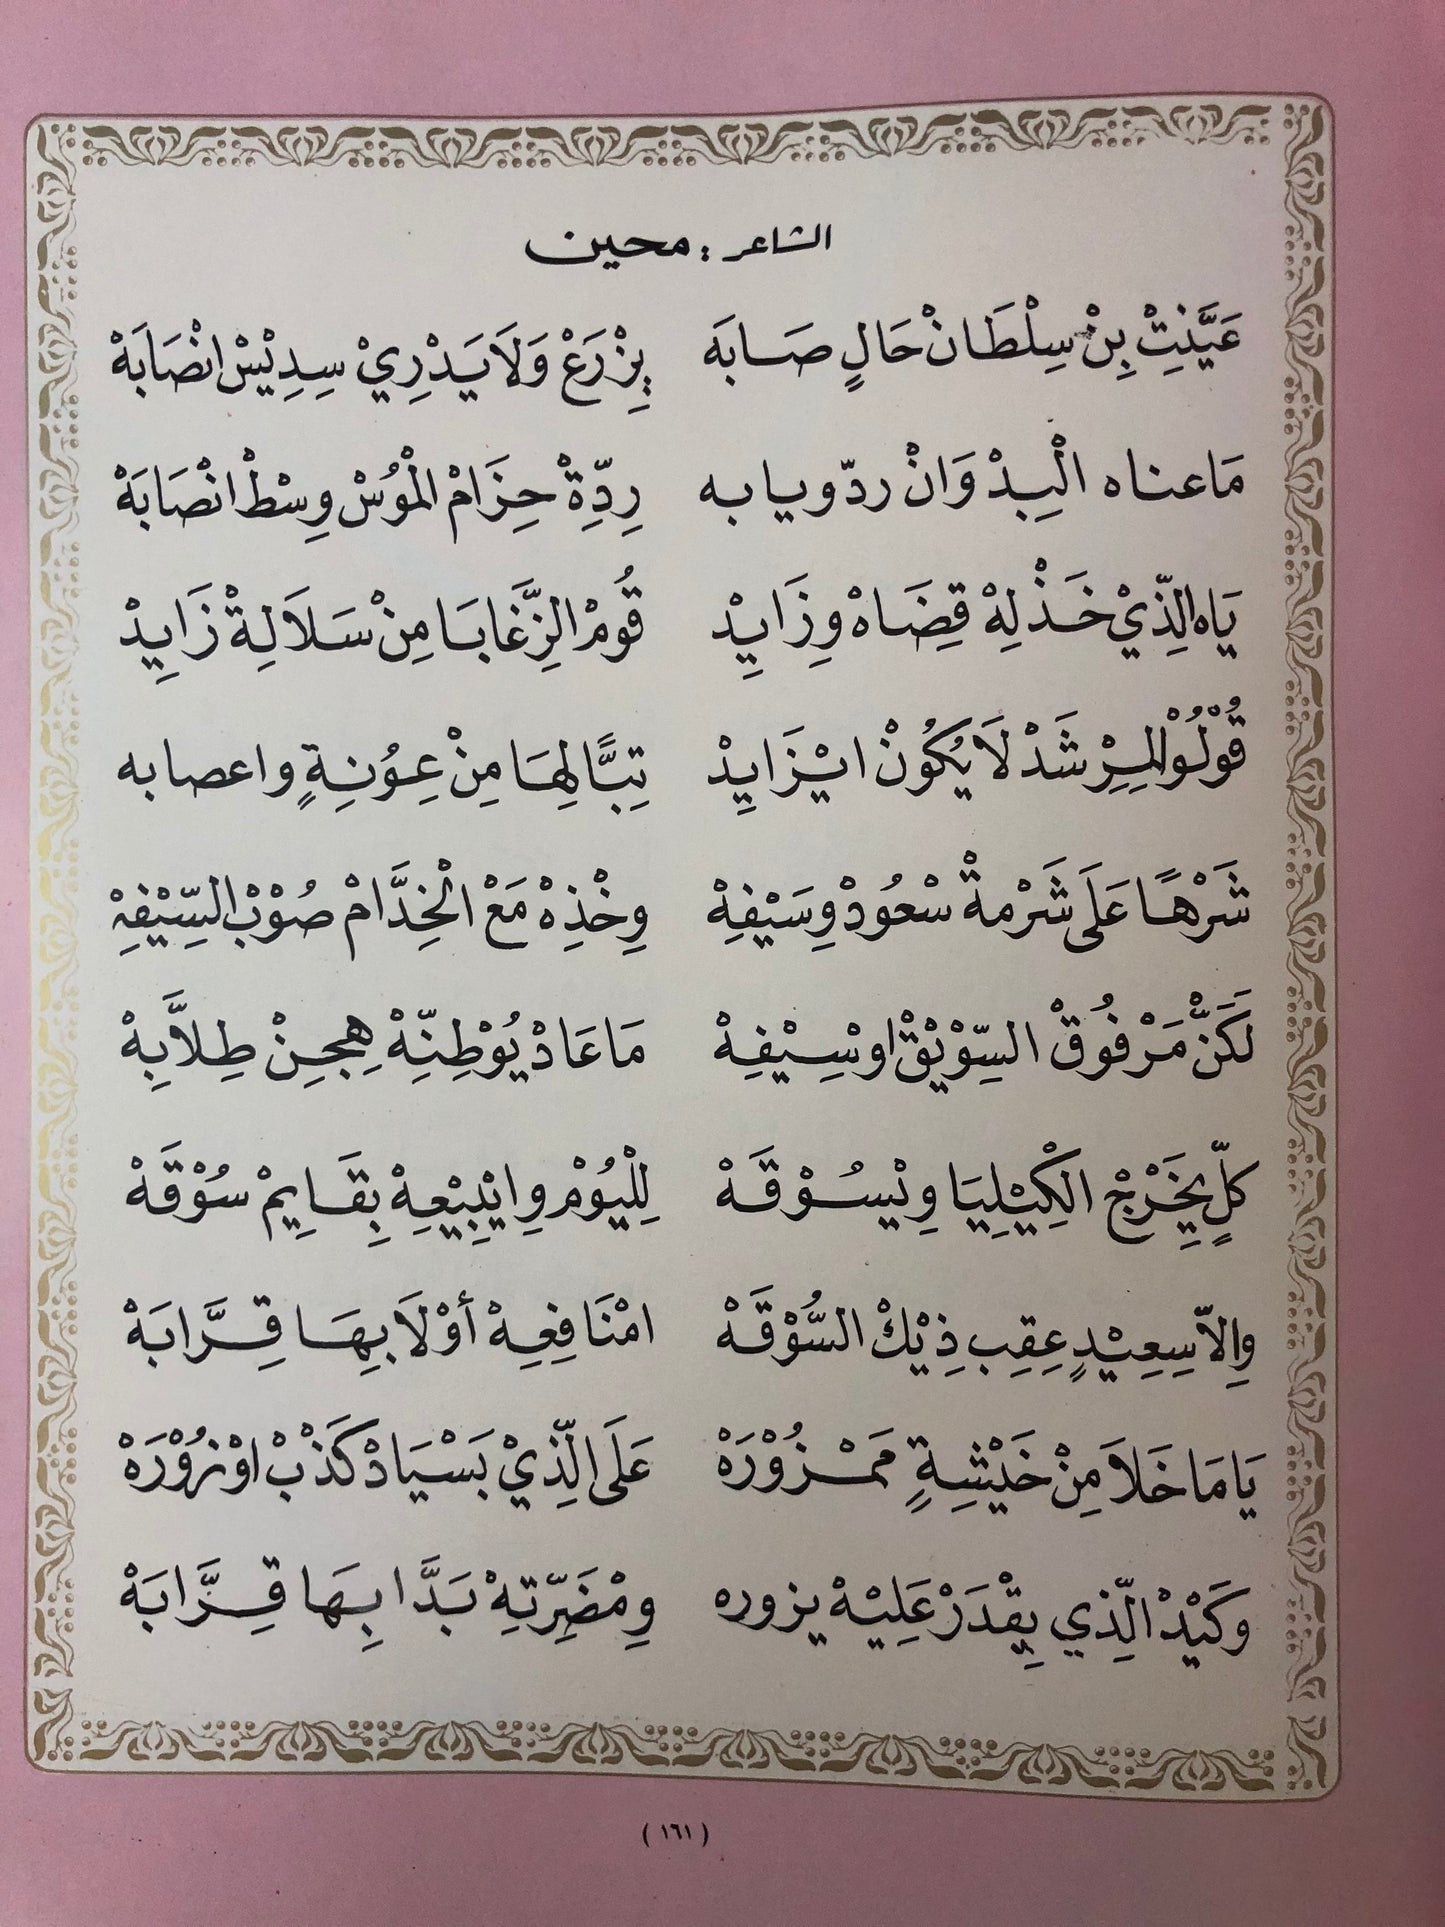 الشاعر : محين
عَيَّنِتْ بِنْ سِلْطَانْ حَالٍ صَابَه بِزْرَعْ وَلاَ يَدْرِيْ سِدِيْسْ انْصَابَهْ
مَا عناه الْبِدْ وَانْ ردّو يا به رِدِّةْ حِزَامْ الْمُوْسْ وِسْطْ انْصَابَهْ
يَاه الِّذِيْ خَذْ لِهْ قِضَاهْ وِزَايِدْ قُومْ الزِّغَابَا مِنْ سَلاَلِةْ زَايِدْ
قُوْلُوْا لِمِرْشَدْ لاَ يْكُوْنْ ايْزَايِدْ تِبًّا لِهَا مِنْ عِوُنِةٍ واعصابه
شَرْهًا عَلَى شَرْمةْ سْعُودْ وِسَيْفِهْ وِخْذِهْ مَعْ الْخِدَّامْ صُوْبْ السِّيْفِهْ
لَكَنّْ مَرْفُوقْ السِّوْيْقْ اوْسِيْفِهْ مَا عَادْ يُوْطِنِّهْ هِجِنْ طِلاَّبِهْ
كلٍّ يِخَرْجْ الْكِيْلِيَا وِيْسُوْقَهْ لِلْيُوْمْ وِايْبِيْعِهْ بِقَايِمْ سُوْقَهْ
وِالاّ سِعِيْدٍ عِقِب ذِيْكْ السُّوْقَهْ امْنَافِعِهْ أوْلاَ بِهَا قِرَّابَهْ
يَا مَا خَلاَ مِنْ خَيْشِةٍ مَمْزُوْرَهْ عَلَى الِّذِيْ بَسْيَادْ كَذْبْ اوْ نزُوْرَهْ
وكَيْدْ الِّذِي يِقْدَرْ عَلِيْهْ يزوره وِمْضَرِّتِهْ بَدَّا بِهَا قِزَّابَهْ
( ١٦١ )